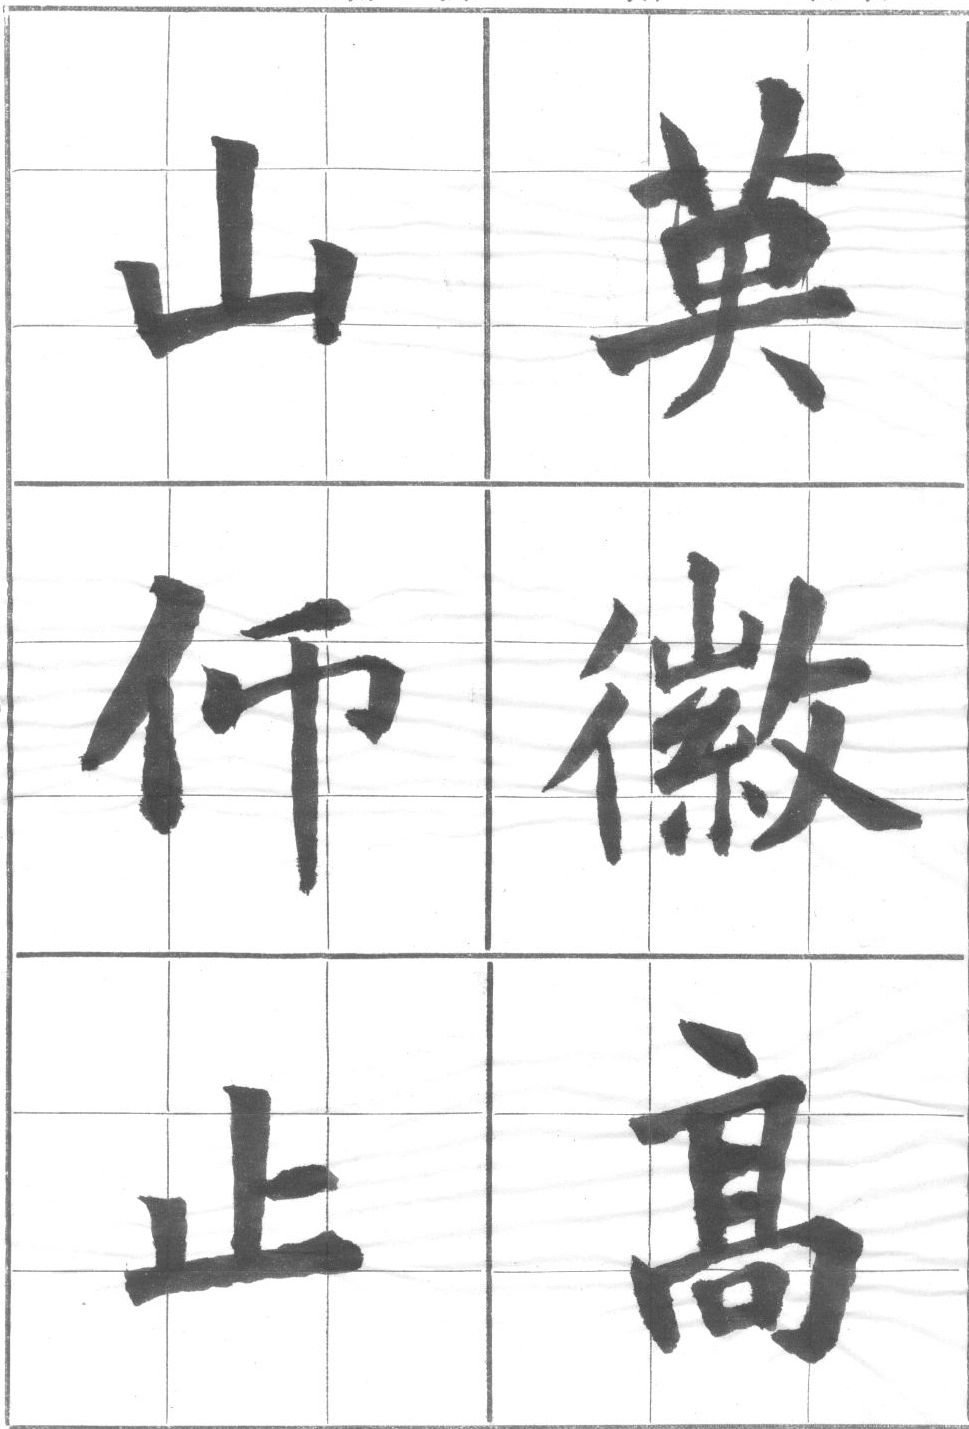 英徽高
山仰止